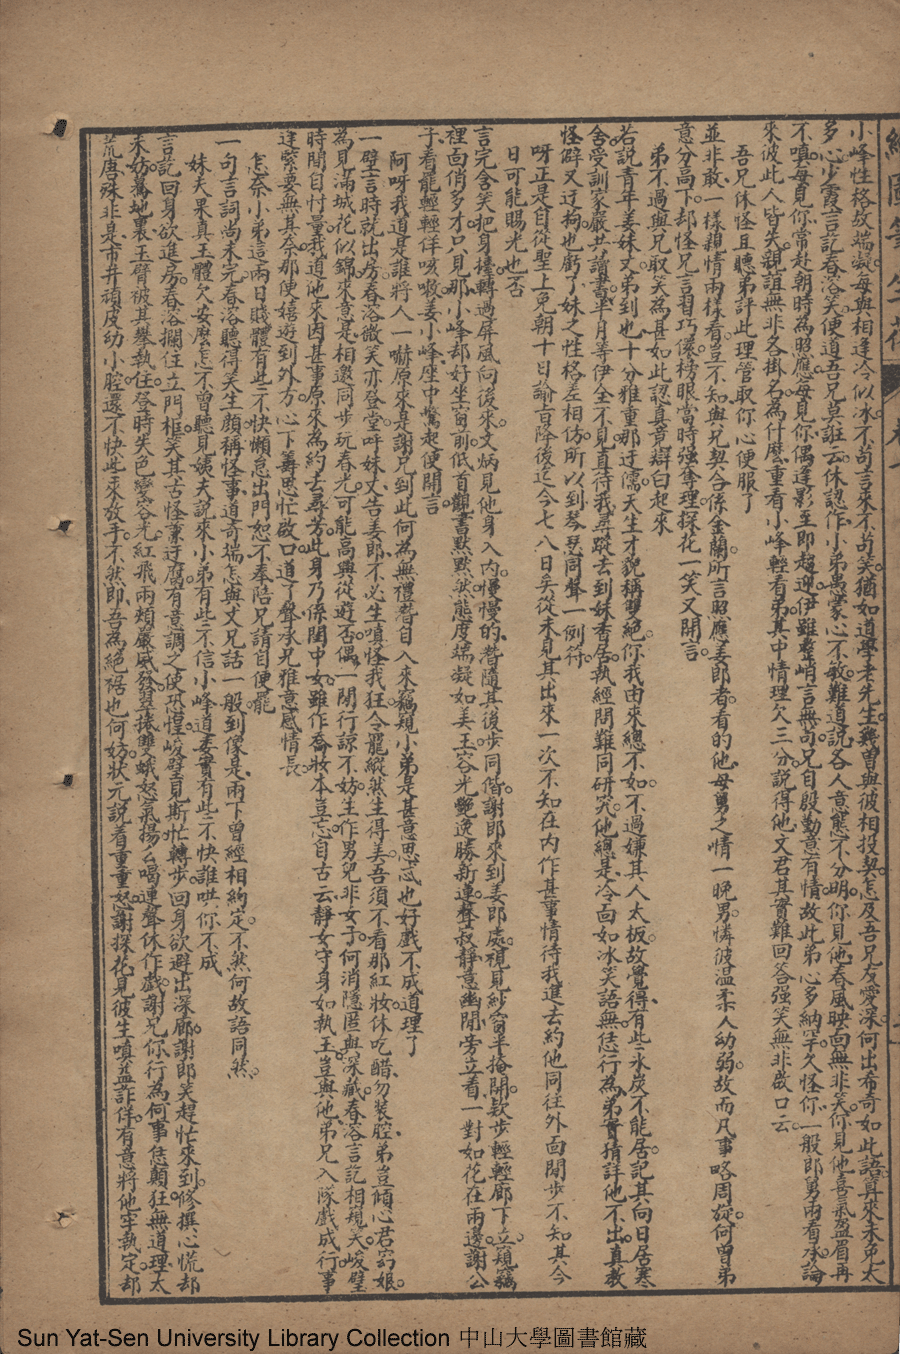 小峰性格故端凝。母與相逢冷似冰。不苟言來不苟笑。猶如道學老先生。幾曾與彼相投契。怎及吾兄友愛深。何出希奇如此語。算來未免太
多心。少霞言訖春溶笑。便道吾兄莫誑云。休認作小弟愚蒙心不敏。難道說各人意態不分明。你見他春風映面無非笑。你見他喜氣盈眉再
不嗔。每見你常赴朝時為照應。每見你偶逢影至即趨迎。伊雖峭言無向。兄自殷勤意有情。故此弟心多納罕。久怪你一般郎舅兩看承。論
來彼此人皆失。親誼無非各掛名。為什麼重看小峰輕看弟。其中情理欠三分。說得他文君其實難回答。强笑無非啟口云。
吾兄休怪且聽弟評此理管取你心便服了
並非敢一樣親情兩樣看。豈不知與兄契合係金蘭。所言照應姜郎者。看的他母舅之情一晚男。憐彼溫柔人幼弱。故而凡事略周旋。何曾弟
意分高下。却怪兄言習巧儇。榜眼當時強奪理。探花一笑又開言。
弟不過與兄取笑為甚如此認真竟辯白起來
若說青年姜妹丈。弟到也十分雅重那迂儒。天生才貌稱雙絕。你我由來總不如。不過嫌其人太板。故覺得有些氷炭不能居。記其向日居寒
舍。受訓家嚴共讀書。半月等伊全不見。直待我尋蹤去到妹香居。執經問難同研究。他總是冷面如冰笑語無。恁行為弟實猜詳他不出。真教
怪僻又迂拘。也虧了妹之性格差相仿。所以到琴瑟同聲一例符。
呀正是自從聖上免朝十日諭旨降後迄今七八日矣從未見其出來一次不知在內作甚事情待我進去約他同往外面閒步不知其今
日可能賜光也否
言完含笑把身擡。轉過屏風向後來。文炳見他身入內。慢慢的潛隨其後步同偕。謝郎來到姜郎處。視見紗窗半掩開。欵步輕輕廊下立。窺竊
裡面俏多才。只見那小峰却好坐窗前。低首觀書默默然。態度端凝如美玉。容光艷逸勝新蓮。聲寂靜。意幽閒。旁立看一對如花在兩邊。謝公
子看罷輕輕佯咳嗽。姜小峰座中驚起便開言。
阿呀我道是誰將人一嚇原來是謝兄到此何為無禮潛自入來竊窺小弟是甚意思忒也好戲不成道理了
一壁言時就出房。春溶微笑亦登堂。呼妹丈。告姜郎。不必生嗔怪我狂。令寵縱然生得美。吾須不看那紅妝。休吃醋。勿裝腔。弟豈傾心君窈娘。
為見滿城花似錦。來意是相邀同步玩春光。可能高興從遊否。偶一閒行諒不妨。生作男兒非女子。何消隱匿與深藏。春溶言訖相窺笑。峻璧
時間自忖量。我道他來因甚事。原來為約去尋芳。此身乃係閨中女。雖作喬妝本豈忘。自古云靜女守身如執玉。豈與他弟兄入隊戲成行。事
逢緊要無其奈。那便嬉遊到外方。心下籌思忙啟口。道了聲承兄雅意感情長。
怎奈小弟這兩日賤體有些不快懶怠出門恕不奉陪兄請自便罷
一句言詞尚未完。春溶聽得笑生顏。稱怪事。道奇端。怎與丈兄話一般。到像是兩下曾經相約定。不然何故語同然。
妹夫果真玉體欠安麼怎不曾聽見姨夫說來小弟有些不信小峰道委實有些不快誰哄你不成
言訖回身欲進房。春溶攔住立門框。笑其古怪兼迂腐。有意調之使恐惶。峻璧見斯忙轉步。回身欲避出深廊。謝郎笑趕忙來到。修撰心慌却
未妨。驀地裏玉臂被其攀執住。登時失色變容光。紅飛兩頰嚴威發。翠接雙蛾怒氣揚。么喝連聲休作戲。謝兄你行為何事恁顛狂。無道理。太
荒唐。殊非是市井頑皮幼小腔。還不快些來放手。不然即吾為絕裾也何妨。狀元說着重重怒。謝探花見彼生嗔益詐佯。有意將他牢執定。却